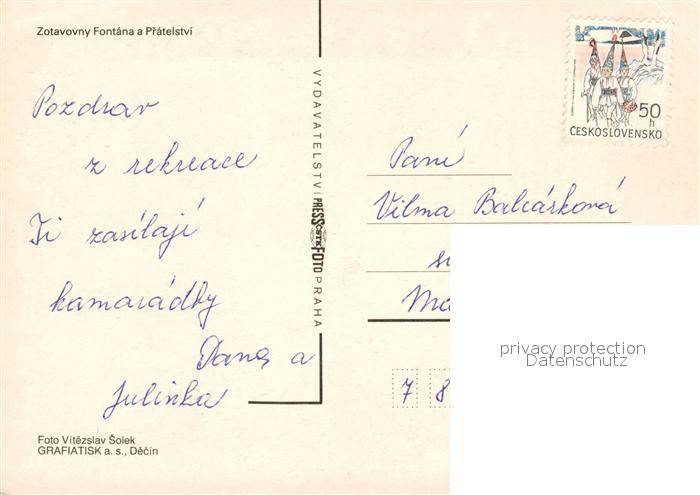 Zotavovny Fontána a Přátelství
Pozdrav
z rekreace
Ti zasílají
kamarádky
Dana a
Julinka
Foto Vítězslav Šolek
GRAFIATISK a. s., Děčín
VYDAVATELSTVÍ PRESSFOTO PRAHA
ČSTK
50
h
ČESKOSLOVENSKO
Paní
Vilma Balcárková
7 8
privacy protection
Datenschutz